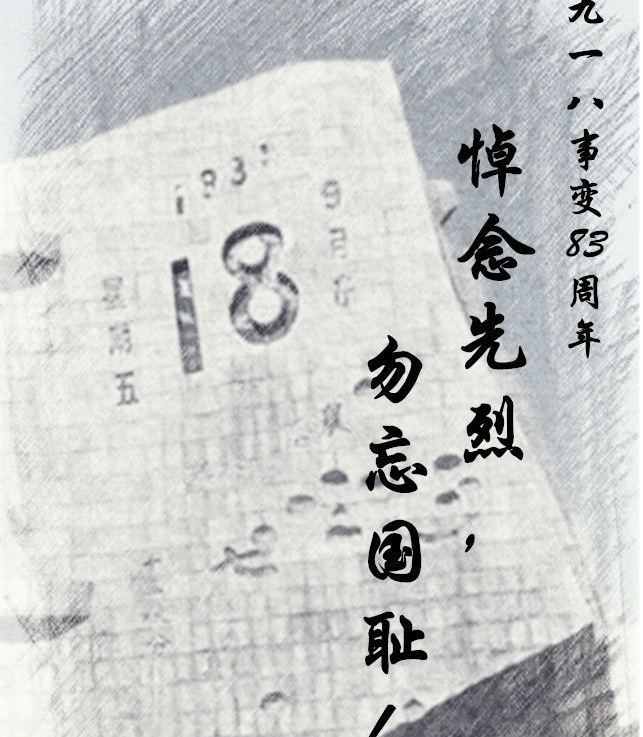 九一八事变83周年
悼念先烈，
勿忘国耻！
1931
9月份
18
星期五